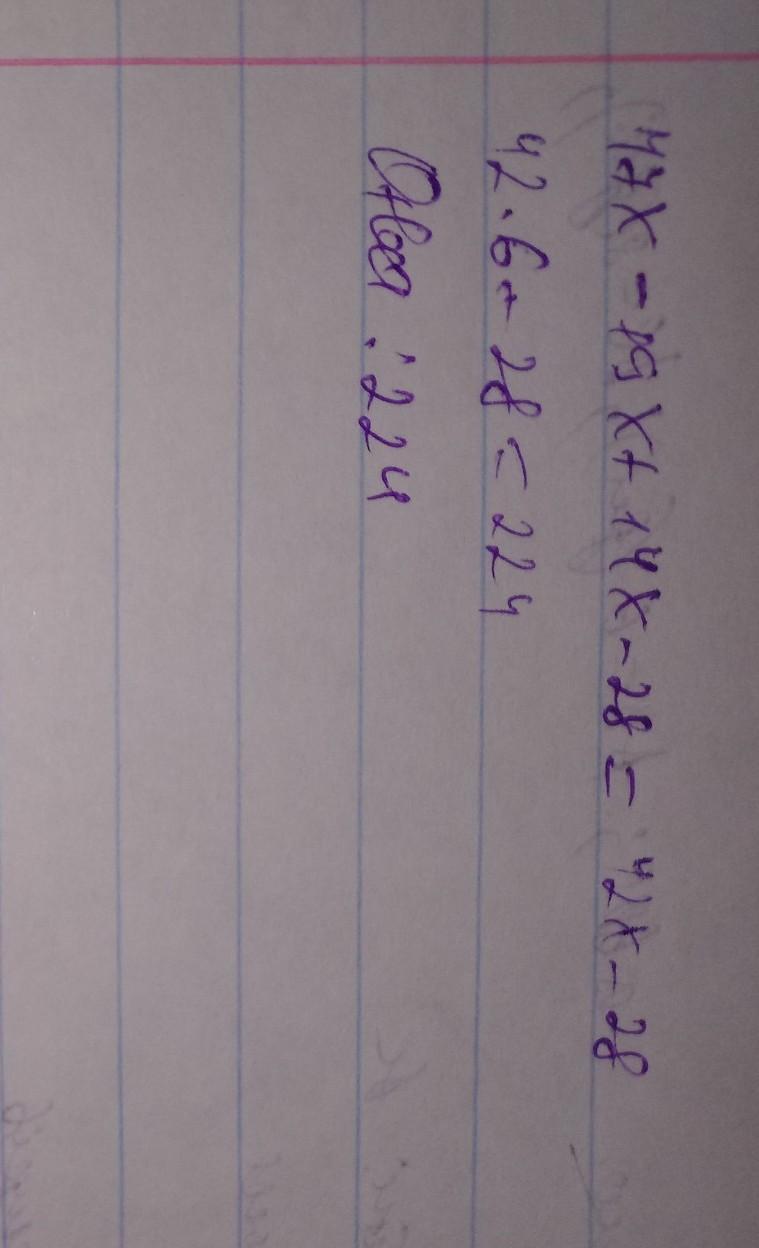 47x - 19x + 14x - 28 = 42x - 28
42 · 6 - 28 = 224
Ответ : 224